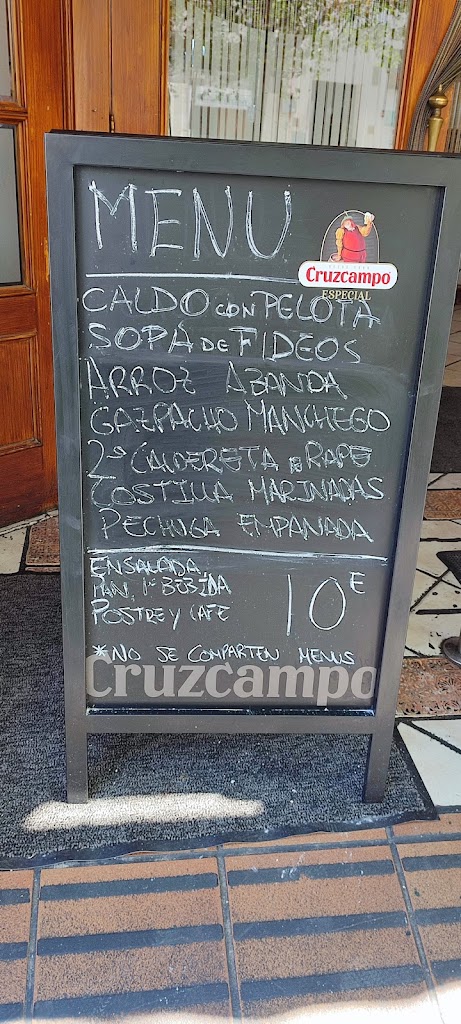 MENU
Cruzcampo
ESPECIAL
CALDO CON PELOTA
SOPA DE FIDEOS
ARROZ ABANDA
GAZPACHO MANCHEGO
2º CALDERETA DE RAPE
COSTILLA MARINADAS
PECHUGA EMPANADA
ENSALADA,
PAN, 1ª BEBIDA
POSTRE Y CAFE
10€
*NO SE COMPARTEN MENUS
Cruzcampo